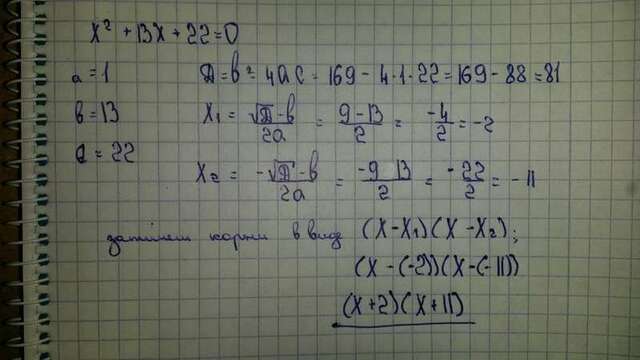 x² + 13x + 22 = 0
a = 1
Д = в² - 4ac = 169 - 4·1·22 = 169 - 88 = 81
в = 13
x₁ = (√Д - в)/2a = (9 - 13)/2 = -4/2 = -2
c = 22
x₂ = (-√Д - в)/2a = (-9 13)/2 = -22/2 = -11
запишем корни в виде (x - x₁)(x - x₂);
(x - (-2))(x - (-11))
(x + 2)(x + 11)